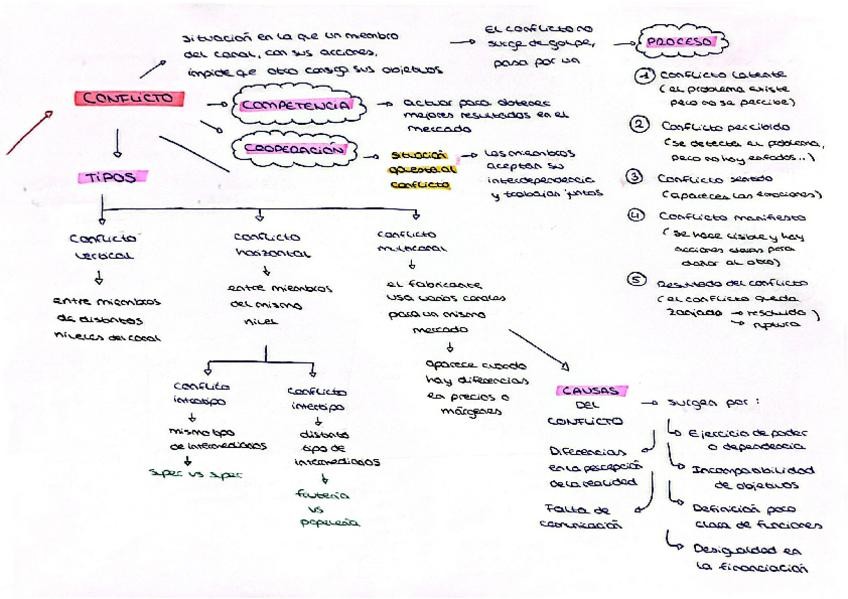 Situación en la que un miembro
del canal, con sus acciones,
impide que otro consiga sus objetivos
El conflicto no
surge de golpe,
pasa por un
PROCESO
① Conflicto latente
(el problema existe
pero no se percibe)
② Conflicto percibido
(se detecta el problema,
pero no hay enfados..)
③ Conflicto sentido
(aparecen las emociones)
④ Conflicto manifiesto
(se hace visible y hay
acciones claras para
dañar al otro)
⑤ Resultado del conflicto
(el conflicto queda
zanjado → resoluido )
→ ruptura
CONFLICTO
COMPETENCIA
actuar para obtener
mejores resultados en el
mercado
COOPERACIÓN
Situación
opuesta al
conflicto
Los miembros
aceptan su
interdependencia
y trabajan juntos
TIPOS
Conflicto
vertical
entre miembros
de distintos
niveles del canal
Conflicto
horizontal
entre miembros
del mismo
nivel
Conflicto
intratipo
mismo tipo
de intermediarios
super vs super
Conflicto
intertipo
distinto
tipo de
intermediarios
frutería
vs
papelería
Conflicto
multicanal
el fabricante
usa varios canales
para un mismo
mercado
aparece cuando
hay diferencias
en precios o
márgenes
CAUSAS
DEL
CONFLICTO
surgen por:
Ejercicio de poder
o dependencia
Incompatibilidad
de objetivos
Definición poco
clara de funciones
Desigualdad en
la financiación
Diferencias
en la percepción
de la realidad
Falta de
comunicación